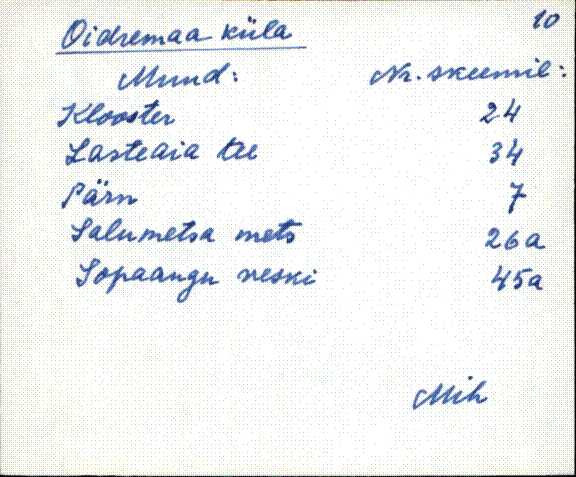 10
Oidremaa küla
Muud: Nr. skeemil:
Klooster 24
Lasteaia tee 34
Pärn 7
Salumetsa mets 26a
Sopaangu veski 45a
Mih